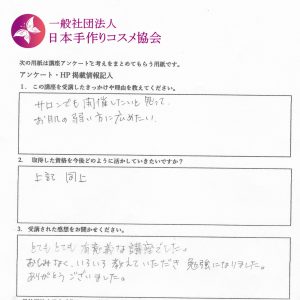 一般社団法人
日本手作りコスメ協会
次の用紙は講座アンケートと考えをまとめてもらう用紙です。
アンケート・HP 掲載情報記入
1. この講座を受講したきっかけや理由を教えてください。
サロンでも開催したいと思って、
お肌の弱い方に広めたい。
2. 取得した資格を今後どのように活かしていきたいですか？
上記 同上
3. 受講された感想をお聞かせください。
とてもとても 有意義な講座でした。
おしみなく、いろいろ教えていただき 勉強になりました。
ありがとうございました。